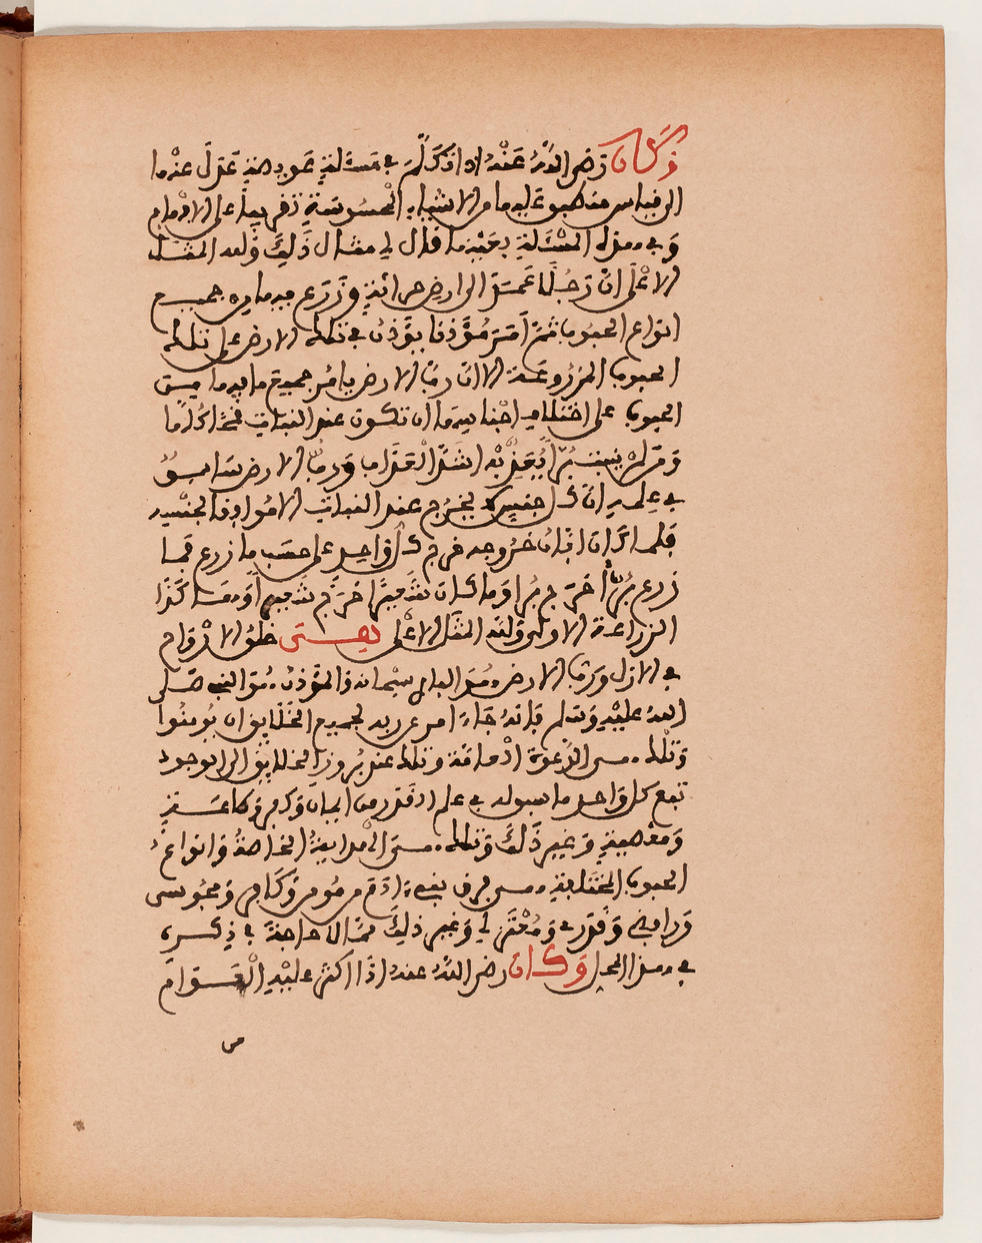 وَكَانَ رَضِيَ اللَّهُ عَنْهُ إذا تَكَلَّمَ في مَسْئَلَةٍ عَوِيصَةٍ عَدَلَ عنْها
الى قياس منطبق عليها من الاشياء المحْسُوسَةِ تقريباً على الافهام
وَفي هذه المسْئَلةِ بعَيْنها قال لي مثال ذَلِكَ ولله المثل
الاعْلَى انَّ رَجُلًا عَمَدَ الى ارضٍ حراثَةٍ وَزَرَعَ فيها من جميع
انواع الحبوب ثمَّ أمَرَ مُؤَذِنا يؤَذِنُ في تلك الارض على تلك
الحبوب المزروعة الا ان ربَّ الارض يامُر جميع ما فيها من
الحبوب على اختلاف اجْناسِها ان تكون عند النبات قمْحًا كُلُّها
وَمَن لمْ يمتثِل يُعَذِّبْه اشَدَّ الْعَذاب وَربُّ الارض سَابِقٌ
في عِلْمهِ ان كل جِنْسٍ لا يَخْرُج عند النباتِ الا مُوافقا لجنْسِه
فَلما كان ابَّانُ خُرُوجه خرج كلُّ وَاحِدٍ على حَسَب ما زرع فما
زرع بُرًّا خَرَج بُرا وَما كان شَعِيرًا خَرَجَ شعيرا وَهَكَذَا
الزراعة الاولى وَلله المثَلُ الاعْلى هِـيَ خلق الارْوَاح
في الازل وربُّ الارض هُوَ البارِي سبْحانه والمؤَذنُ هُوَ النبي صَلى
اللهُ عليْهِ وَسَلم فإنهُ جَاءَ امر عن ربه لجميع الخَلَايق ان يُومنُوا
وَتلك هي الدَّعْوَة العامة وتلك عند بُروز الخلائق الى الوجود
تبع كل وَاحدٍ ما سبق له في علم الله من ايمان وَكفر وَطاعَـةٍ
وَمَعْصيةٍ وَغير ذَلكَ وَتلك هي الْهدايةُ الخاصةُ وَانواعُ
الحبوب المختلفة هي فرق بني ءادَم من مُومِن وَكَافر وَمجُوسي
وَرافضِي وَقَدري وَمُعْتَزِلي وَغير ذلِكَ مما لا حاجة في ذِكره
في هذا المحل وَكـان رضي اللهُ عنهُ اذَا اكثر عليْهِ الْعَـوامّ
من